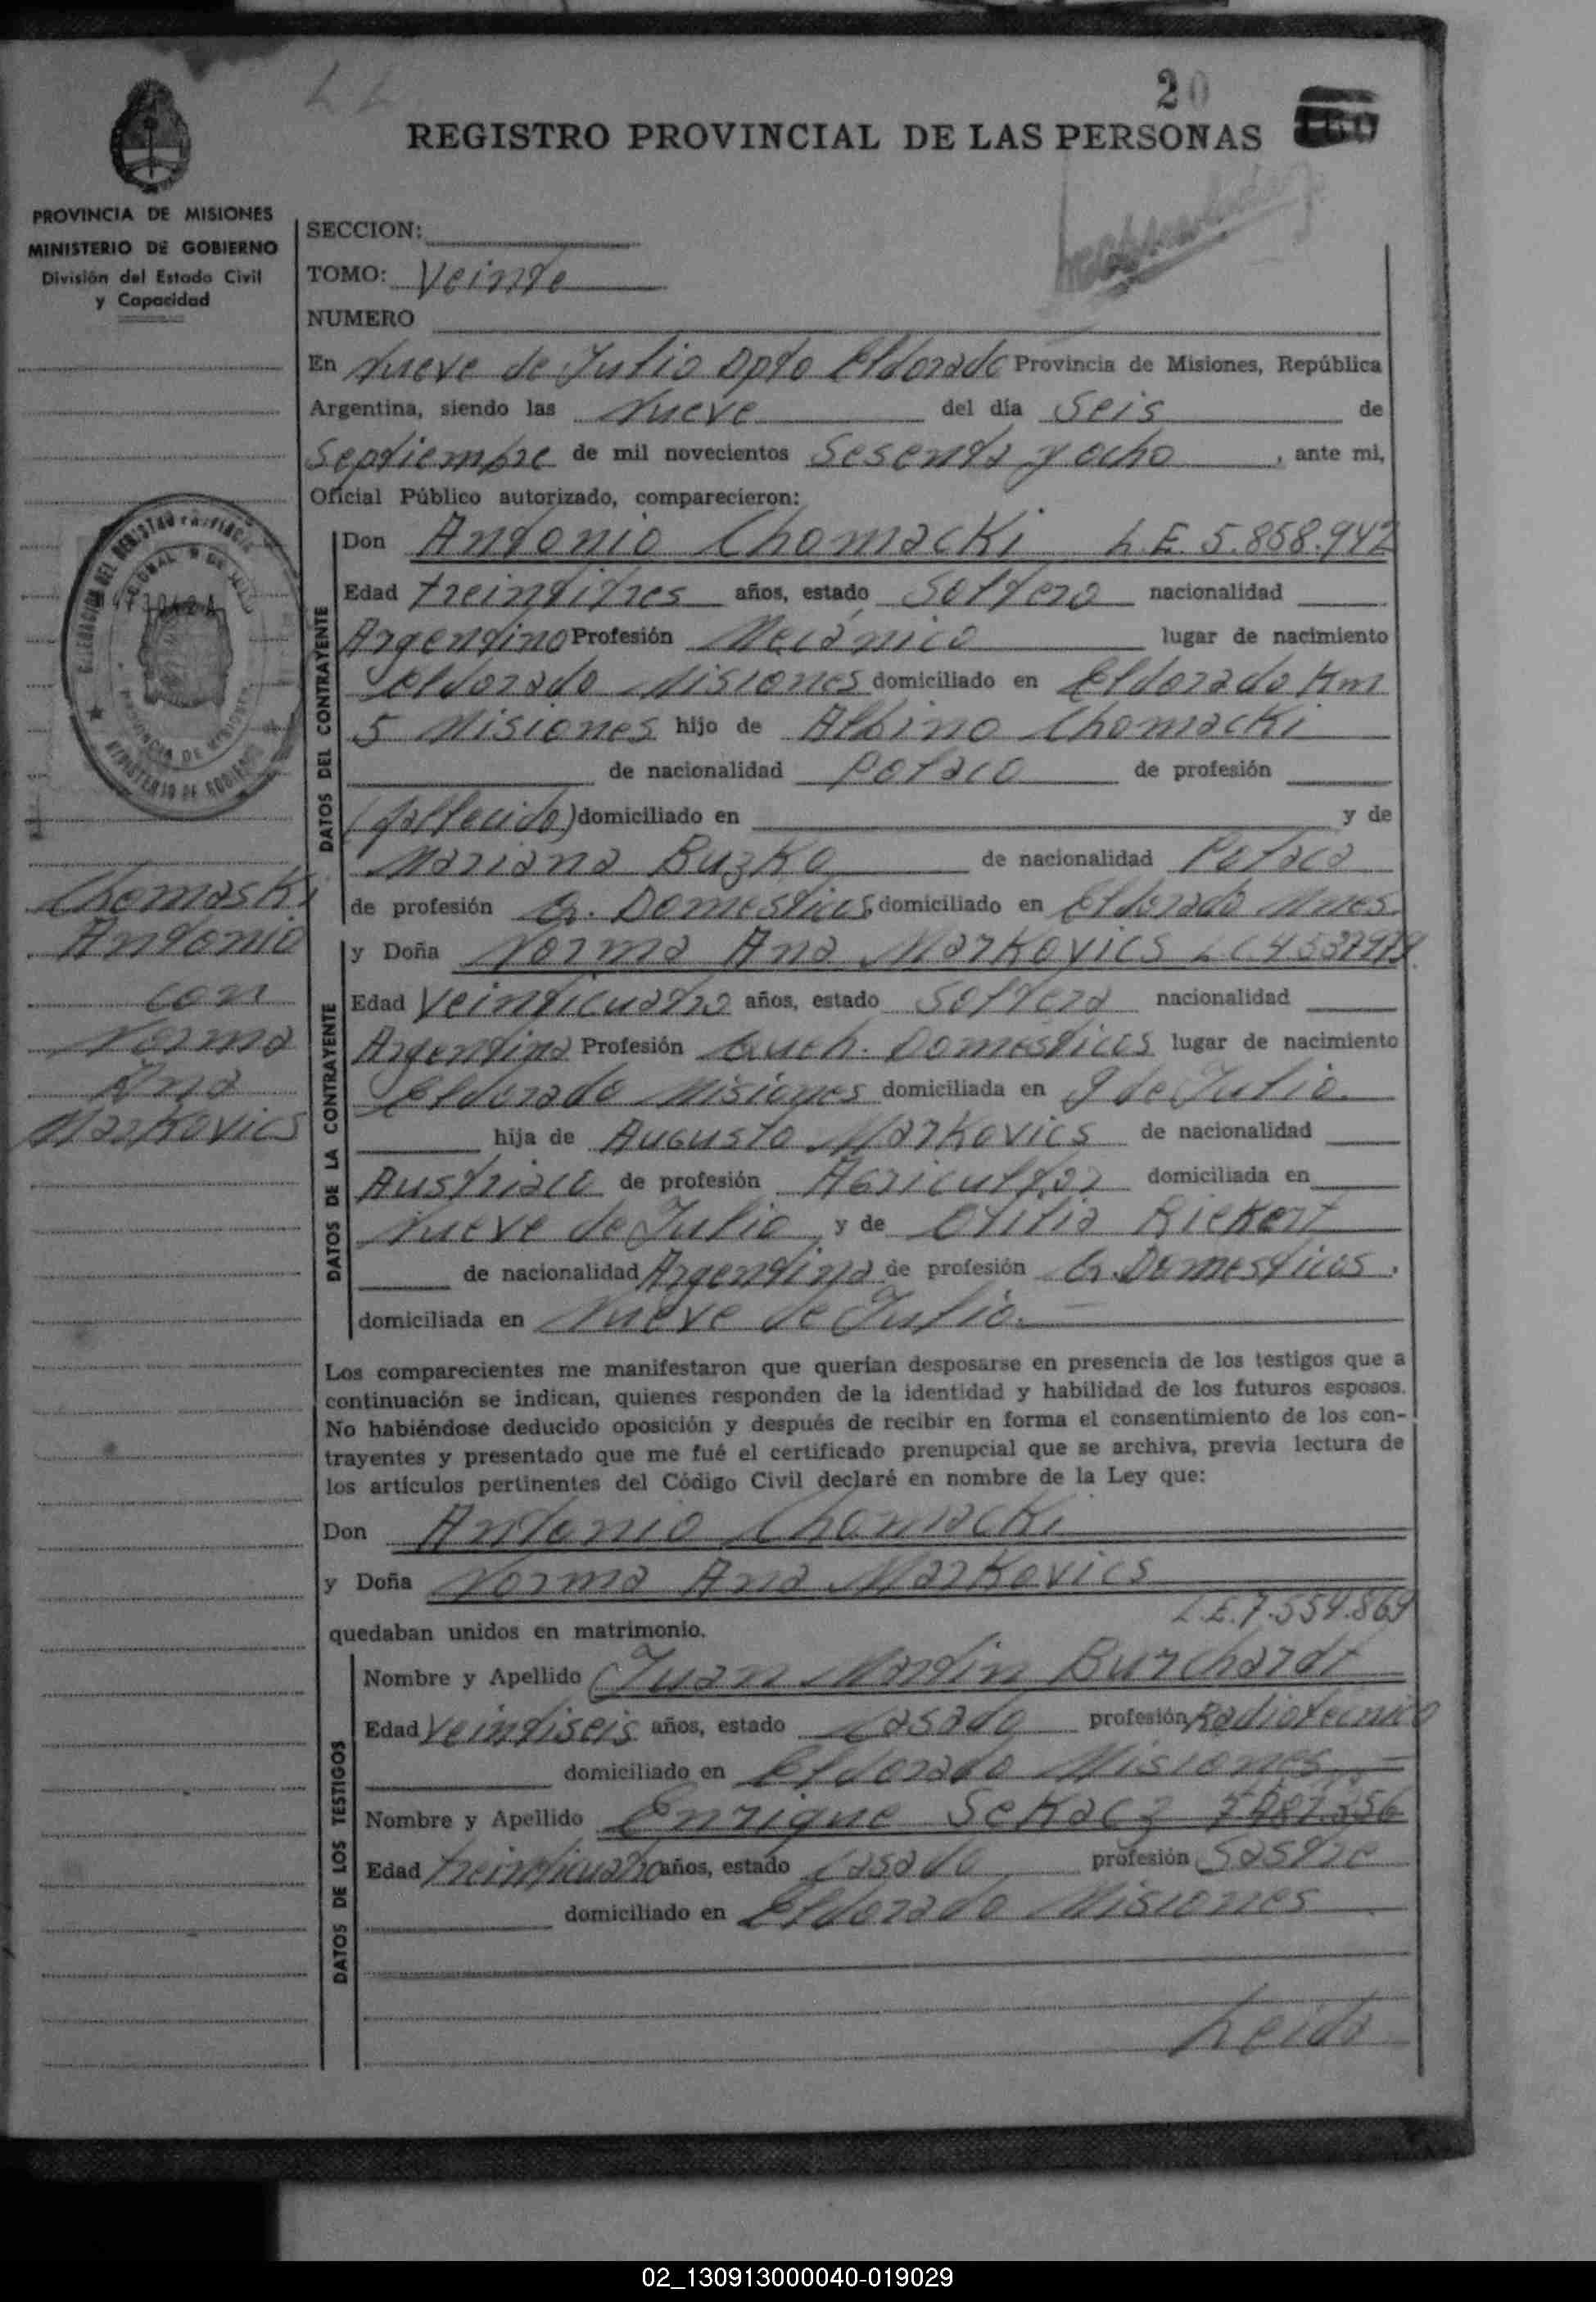 20
REGISTRO PROVINCIAL DE LAS PERSONAS
PROVINCIA DE MISIONES
MINISTERIO DE GOBIERNO
División del Estado Civil
y Capacidad
SECCION:
TOMO: Veinte
NUMERO
En Nueve de Julio Dpto Eldorado Provincia de Misiones, República
Argentina, siendo las Nueve del día Seis de
Septiembre de mil novecientos Sesenta y ocho, ante mi,
Oficial Público autorizado, comparecieron:
DATOS DEL CONTRAYENTE
Don Antonio Chomacki L.E. 5.858.942
Edad treintitres años, estado Soltero nacionalidad
Argentino Profesión Mecánico lugar de nacimiento
Eldorado Misiones domiciliado en Eldorado Km
5 Misiones hijo de Albino Chomacki
de nacionalidad Polaco de profesión
(fallecido) domiciliado en y de
Mariana Buzko de nacionalidad Polaca
de profesión Q. Domesticos domiciliado en Eldorado Mnes
Chomaski
Antonio
con
Norma
Ana
Markovics
DATOS DE LA CONTRAYENTE
y Doña Norma Ana Markovics L.C. 4537979
Edad Veinticuatro años, estado Soltera nacionalidad
Argentina Profesión Queh. Domesticos lugar de nacimiento
Eldorado Misiones domiciliada en 9 de Julio
hija de Augusto Markovics de nacionalidad
Austriaco de profesión Agricultor domiciliada en
Nueve de Julio y de Otilia Riekert
de nacionalidad Argentina de profesión Q. Domesticos.
domiciliada en Nueve de Julio.
Los comparecientes me manifestaron que querían desposarse en presencia de los testigos que a
continuación se indican, quienes responden de la identidad y habilidad de los futuros esposos.
No habiéndose deducido oposición y después de recibir en forma el consentimiento de los con-
trayentes y presentado que me fué el certificado prenupcial que se archiva, previa lectura de
los artículos pertinentes del Código Civil declaré en nombre de la Ley que:
Don Antonio Chomacki
y Doña Norma Ana Markovics
quedaban unidos en matrimonio. L.E. 7.554.869
DATOS DE LOS TESTIGOS
Nombre y Apellido Juan Martin Burchardt
Edad Veintiseis años, estado Casado profesión Radiotecnico
domiciliado en Eldorado Misiones
Nombre y Apellido Enrique Sekacz 7487356
Edad treinticuatro años, estado Casado profesión Sastre
domiciliado en Eldorado Misiones
Leida
02_130913000040-019029